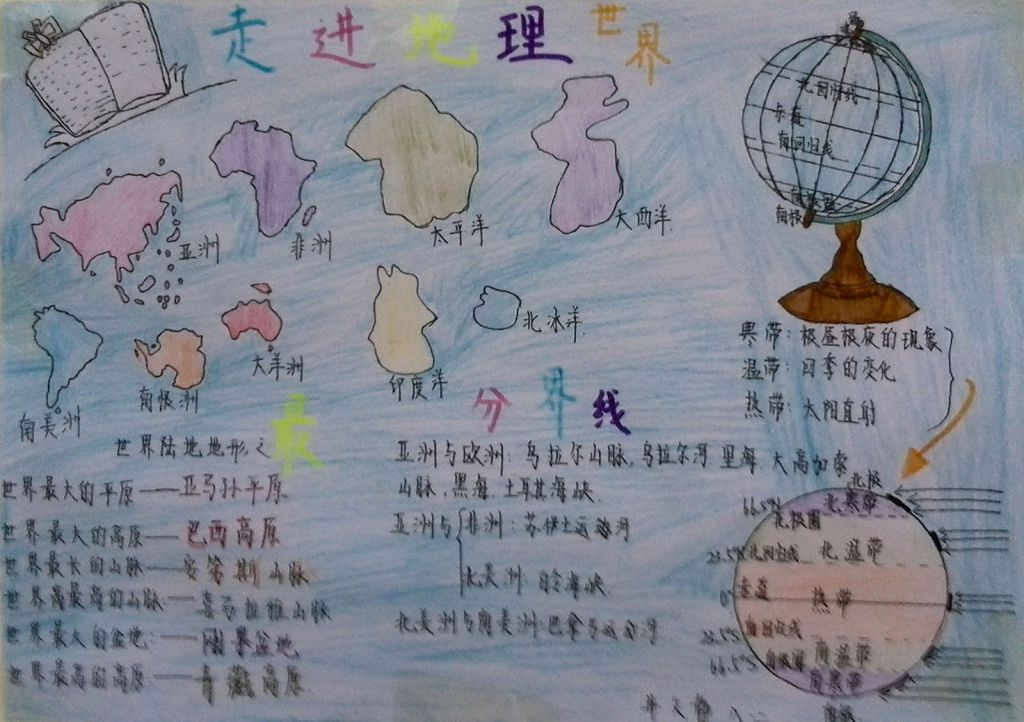 走进地理世界
北回归线
赤道
南回归线
南极
亚洲
非洲
太平洋
大西洋
南美洲
南极洲
大洋洲
印度洋
北冰洋
寒带：极昼极夜的现象
温带：四季的变化
热带：太阳直射
世界陆地地形之最
世界最大的平原——亚马孙平原
世界最大的高原——巴西高原
世界最长的山脉——安第斯山脉
世界高最高的山脉——喜马拉雅山脉
世界最大的盆地：——刚果盆地
世界最高的高原——青藏高原
分界线
亚洲与欧洲：乌拉尔山脉，乌拉尔河 里海 大高加索
山脉，黑海 土耳其海峡
亚洲与 非洲：苏伊士运河
北美洲：白令海峡
北美洲与南美洲：巴拿马运河
北极
66.5°N 北寒带
北极圈
23.5°N 北回归线 北温带
0° 赤道 热带
23.5°S 南回归线
66.5°S 南极圈 南温带
南寒带
南极